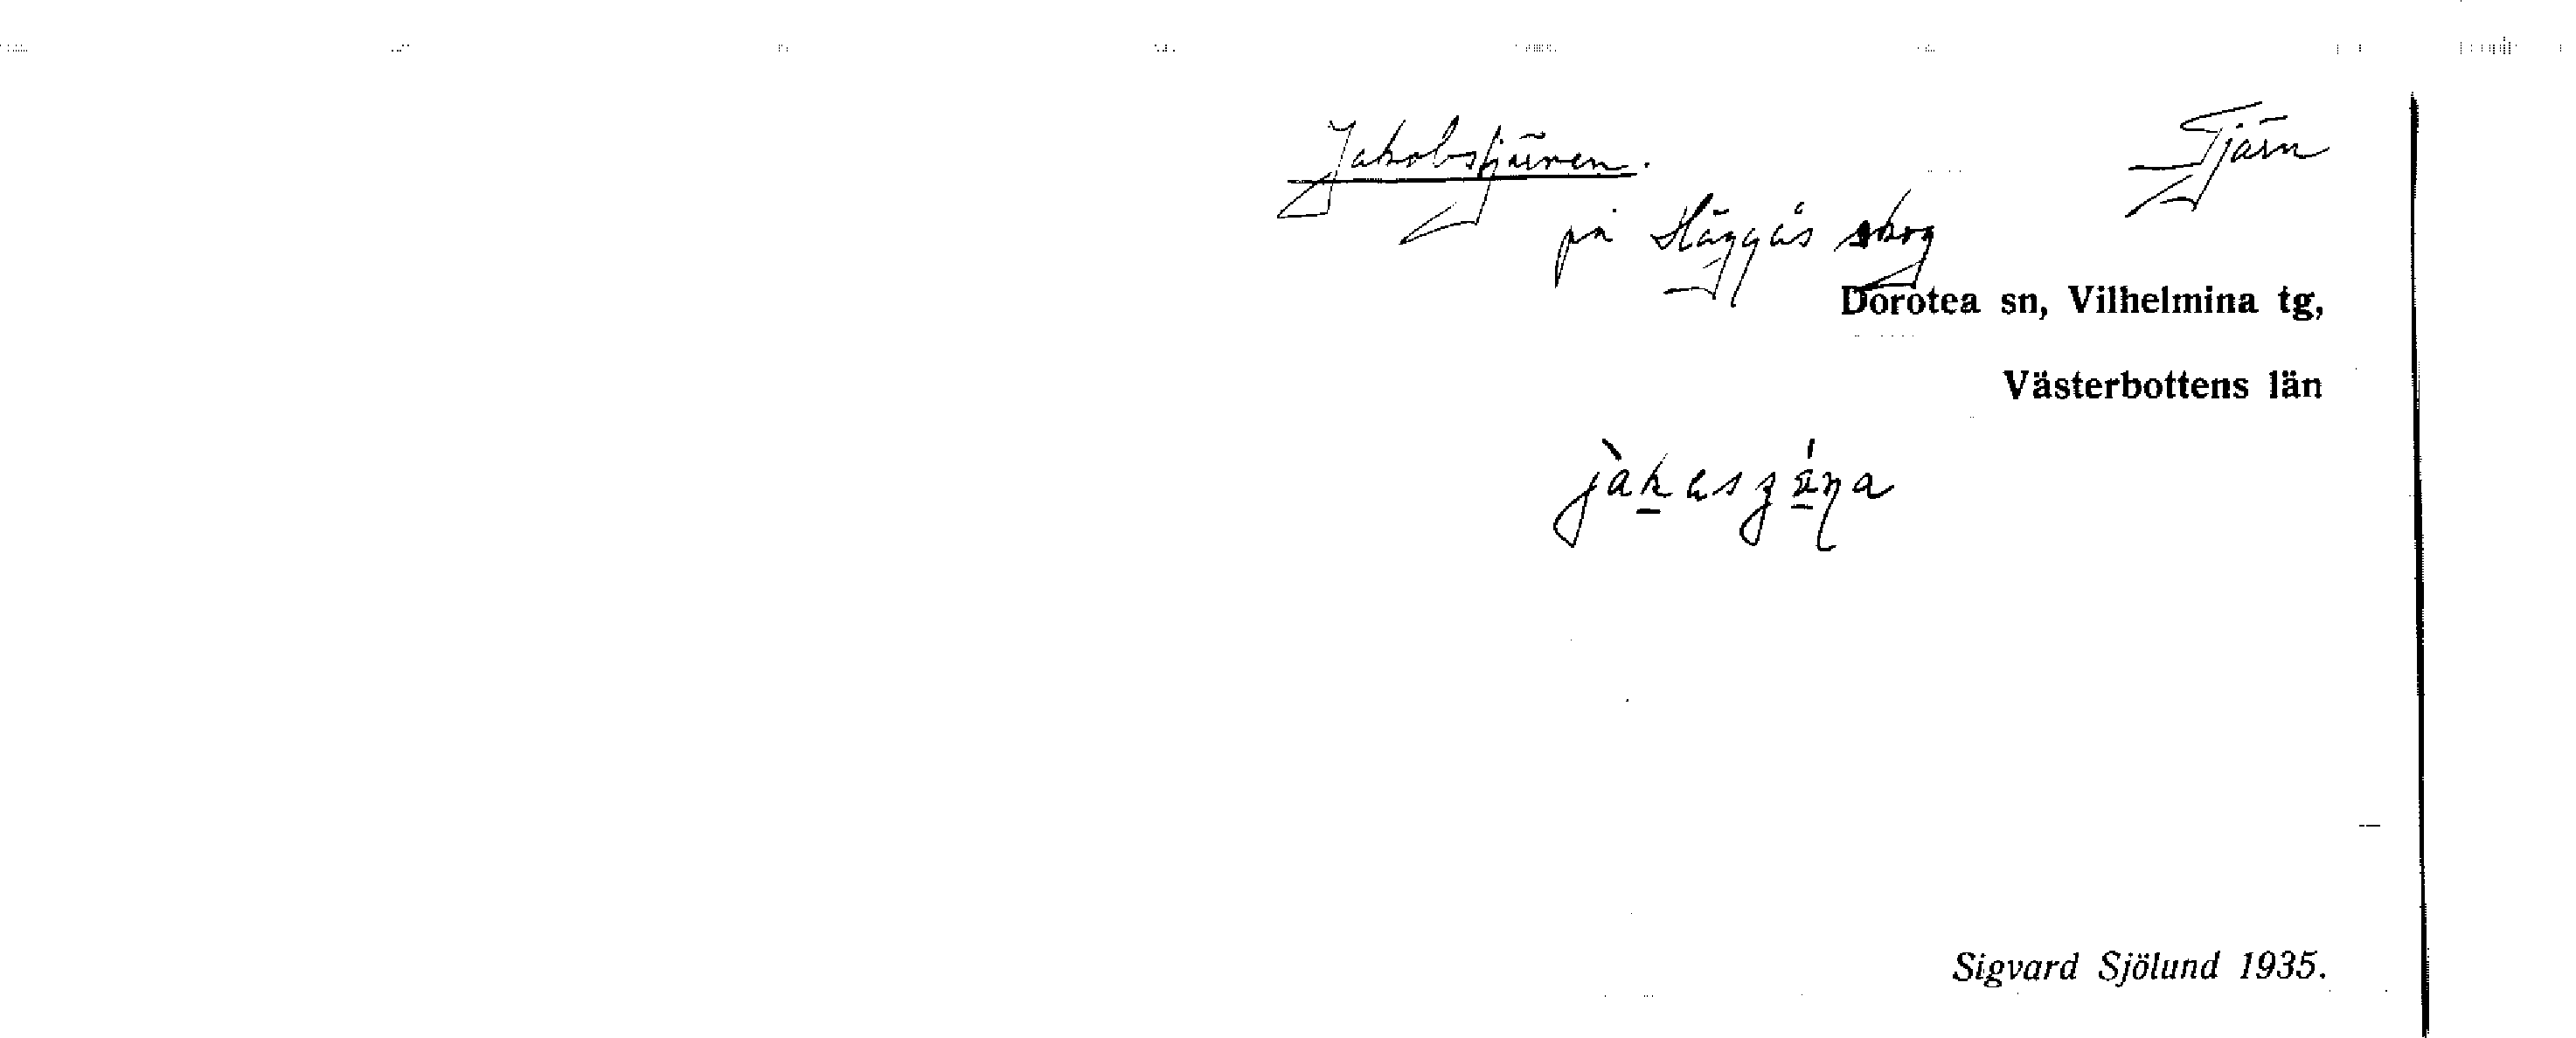 Jakobstjärnen. Tjärn
på Häggås skog
Dorotea sn, Vilhelmina tg,
Västerbottens län
Sigvard Sjölund 1935.